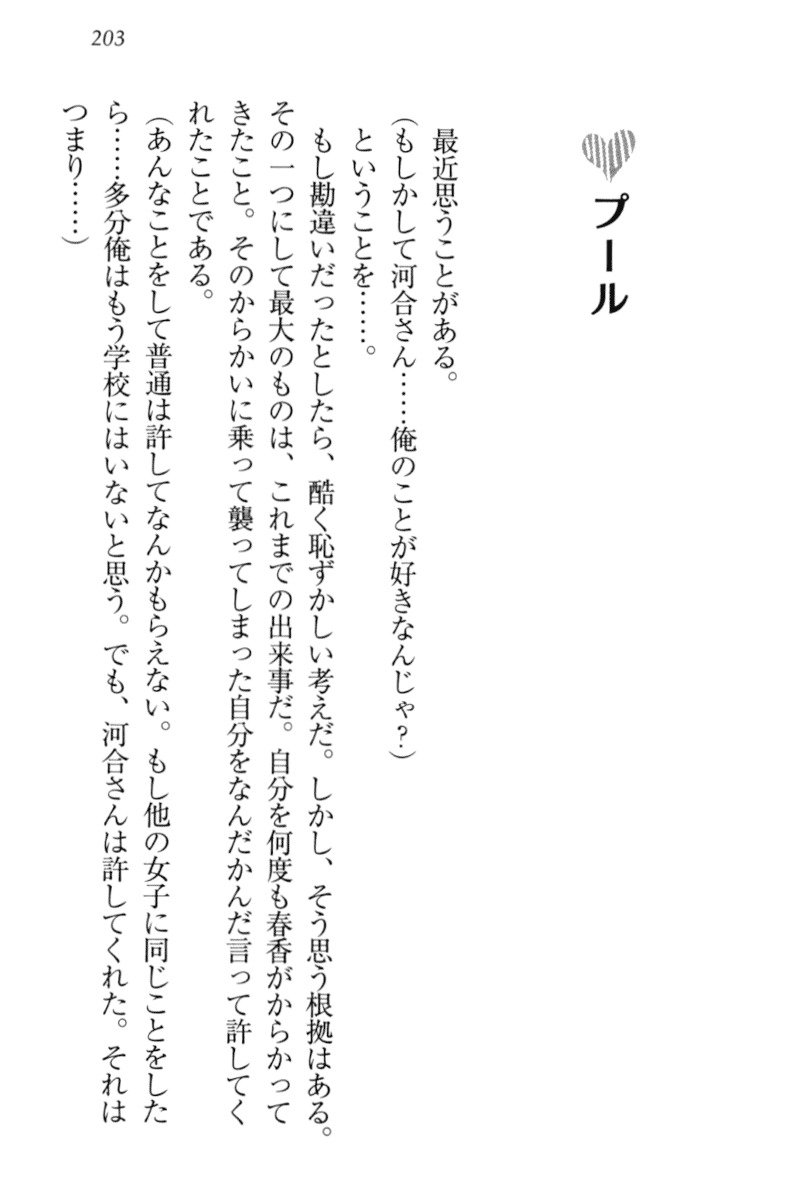 203
プール
最近思うことがある。
(もしかして河合さん……俺のことが好きなんじゃ?)
ということを……。
もし勘違いだったとしたら、酷く恥ずかしい考えだ。しかし、そう思う根拠はある。
その一つにして最大のものは、これまでの出来事だ。自分を何度も春香がからかって
きたこと。そのからかいに乗って襲ってしまった自分をなんだかんだ言って許してく
れたことである。
(あんなことをして普通は許してなんかもらえない。もし他の女子に同じことをした
ら……多分俺はもう学校にはいないと思う。でも、河合さんは許してくれた。それは
つまり……)